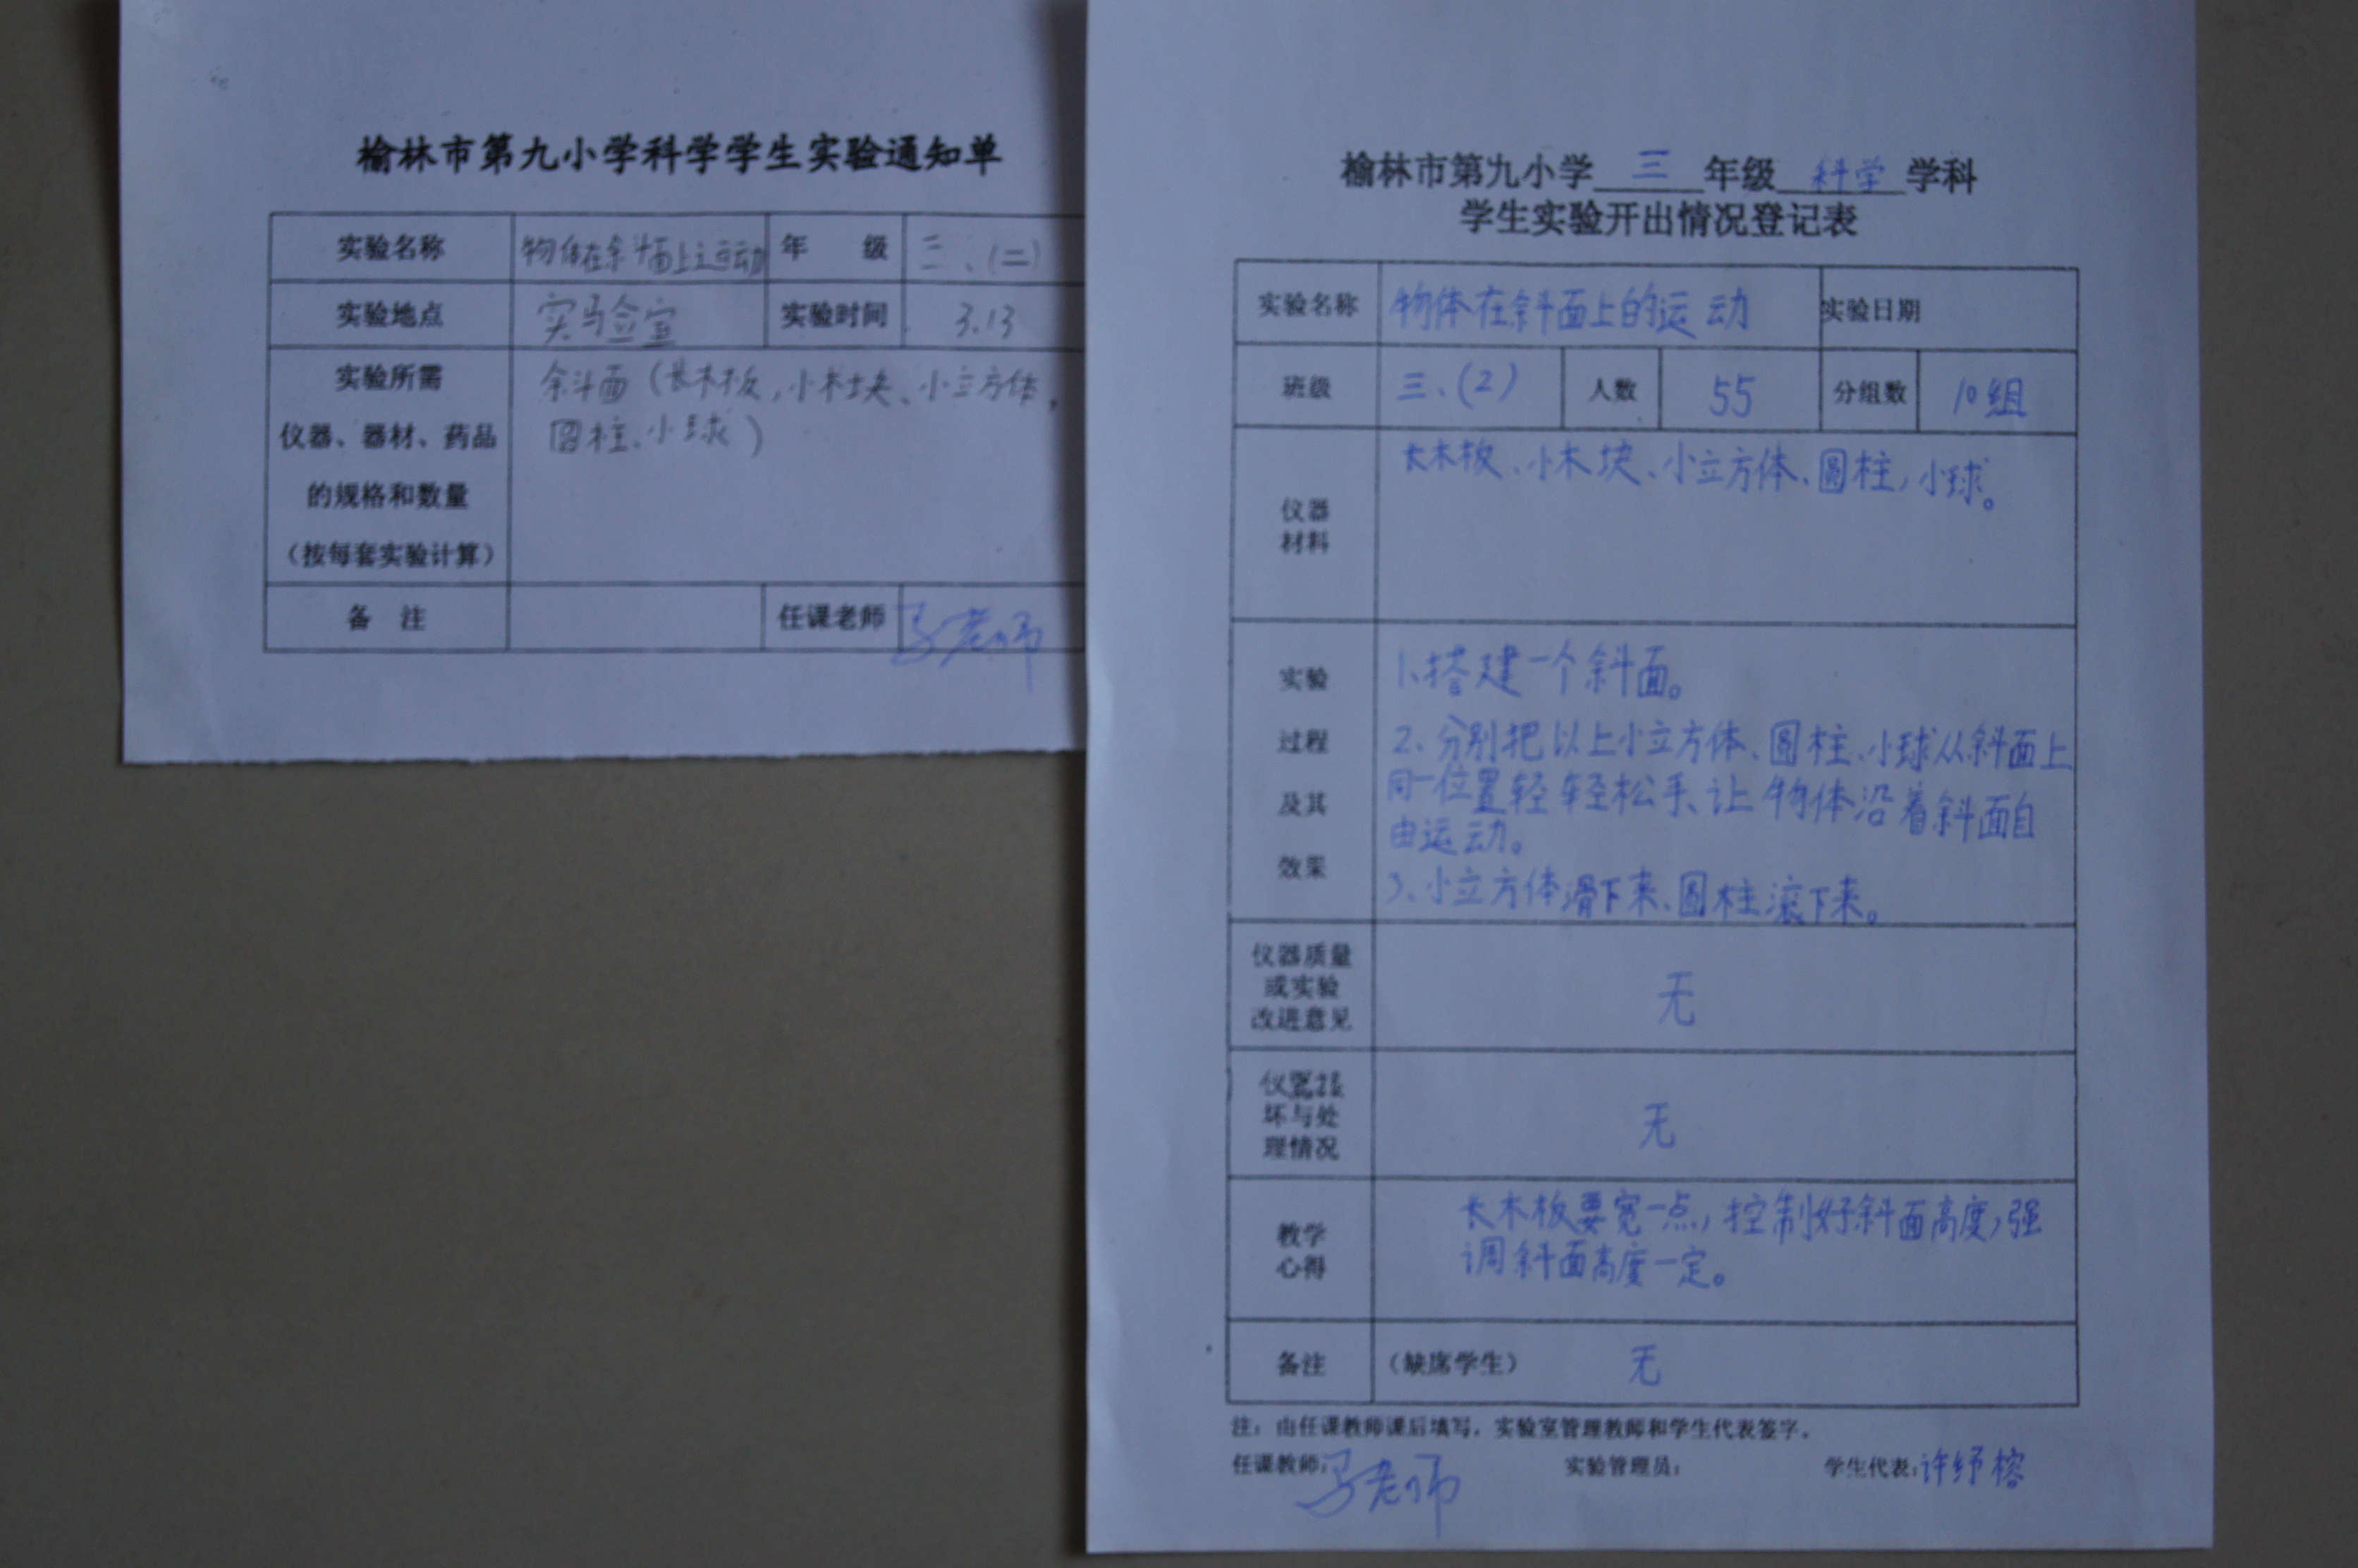 榆林市第九小学科学学生实验通知单
实验名称 物体在斜面上运动 年 级 三、(二)
实验地点 实验室 实验时间 3.13
实验所需
仪器、器材、药品
的规格和数量
（按每套实验计算）
斜面（长木板,小木块、小立方体,
圆柱、小球）
备 注 任课老师 马老师
榆林市第九小学 三 年级 科学 学科
学生实验开出情况登记表
实验名称 物体在斜面上的运动 实验日期
班级 三、(2) 人数 55 分组数 10组
仪器
材料
长木板、小木块、小立方体、圆柱,小球。
实验
过程
及其
效果
1、搭建一个斜面。
2、分别把以上小立方体、圆柱、小球从斜面上
同一位置轻轻松手、让物体沿着斜面自
由运动。
3、小立方体滑下来、圆柱滚下来。
仪器质量
或实验
改进意见
无
仪器损
坏与处
理情况
无
教学
心得
长木板要宽一点,控制好斜面高度,强
调斜面高度一定。
备注 （缺席学生） 无
注：由任课教师课后填写，实验室管理教师和学生代表签字。
任课教师：马老师 实验管理员： 学生代表：许纾榕